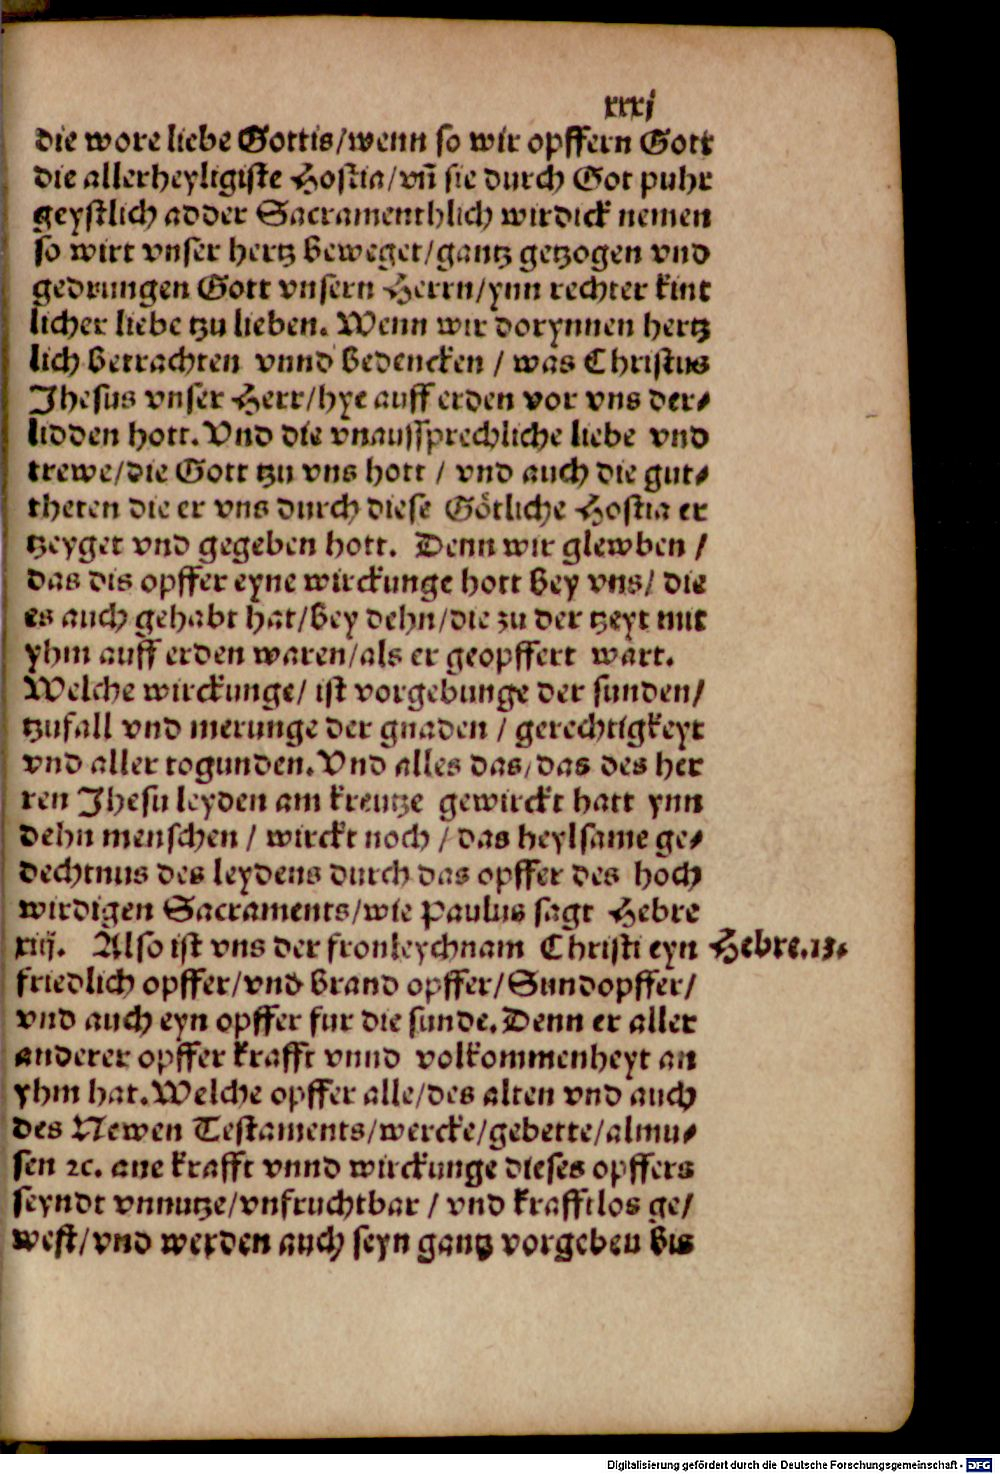 xxxj
die wore liebe Gottis/wenn so wir opffern Gott
die allerheyligiste Hostia/vñ sie durch Got puhr
geystlich adder Sacramenthlich wirdick nemen
so wirt vnser hertz beweget/gantz getzogen vnd
gedrungen Gott vnsern Herrn/ynn rechter kint
licher liebe tzu lieben. Wenn wir dorynnen hertz
lich betrachten vnnd bedencken / was Christus
Jhesus vnser Herr/hye auff erden vor vns der⸗
lidden hott. Vnd die vnausssprechliche liebe vnd
trewe/die Gott tzu vns hott / vnd auch die gut⸗
theten die er vns durch diese Götliche Hostia er
tzeyget vnd gegeben hott. Denn wir glewben /
das dis opffer eyne wirckunge hott bey vns/ die
es auch gehabt hat/bey dehn/die zu der tzeyt mit
yhm auff erden waren/als er geopffert wart.
Welche wirckunge/ ist vorgebunge der sunden/
tzufall vnd merunge der gnaden / gerechtigkeyt
vnd aller togunden. Vnd alles das/das des her
ren Jhesu leyden am kreutze gewirckt hatt ynn
dehn menschen / wirckt noch / das heylsame ge⸗
dechtnus des leydens durch das opffer des hoch
wirdigen Sacraments/wie Paulus sagt Hebre
xiij. Also ist vns der fronleychnam Christi eyn
Hebre.13.
friedlich opffer/vnd brand opffer/Sundopffer/
vnd auch eyn opffer fur die sunde. Denn er aller
anderer opffer krafft vnnd volkommenheyt an
yhm hat. Welche opffer alle/des alten vnd auch
des Newen Testaments/wercke/gebette/almu⸗
sen ꝛc. ane krafft vnnd wirckunge dieses opffers
seyndt vnnutze/vnfruchtbar / vnd krafftlos ge/
west/vnd werden auch seyn gantz vorgeben bis
Digitalisierung gefördert durch die Deutsche Forschungsgemeinschaft - DFG